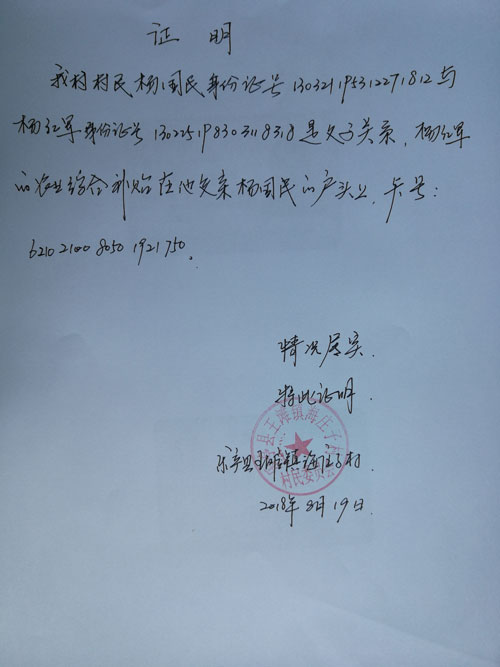 证 明
我村村民杨国民身份证号130321195312271812与
杨红军身份证号130225198303118318是父子关系,杨红军
的农业综合补贴在他父亲杨国民的户头上,卡号:
6210 2100 8050 1921 750。
情况属实.
特此证明
乐亭县王滩镇海庄子村
村民委员会
2018年8月19日.